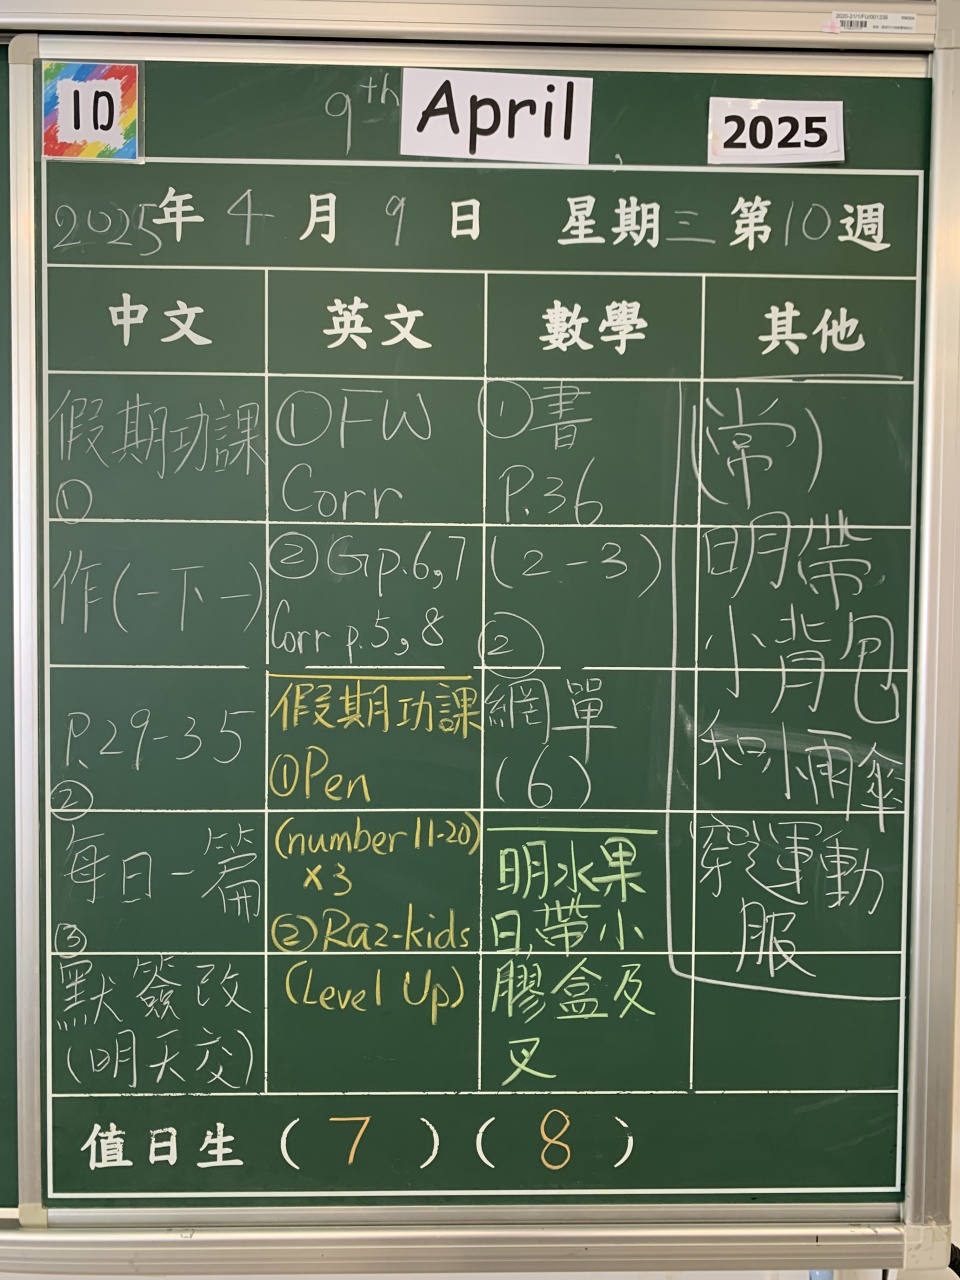 1D
9th April 2025
2025年4月9日 星期三 第10週
中文
英文
數學
其他
假期功課
①
作(一下一)
P.29-35
②
每日一篇
③
默簽改
(明天交)
①FW
Corr
②G p.6,7
Corr p.5,8
假期功課
①Pen
(number 11-20)
x3
②Raz-kids
(Level Up)
①書
P.36
(2-3)
②
網單
(6)
明水果
日,帶小
膠盒及
叉
(常)
明帶
小背包
和小雨傘
穿運動
服
值日生 (7) (8)